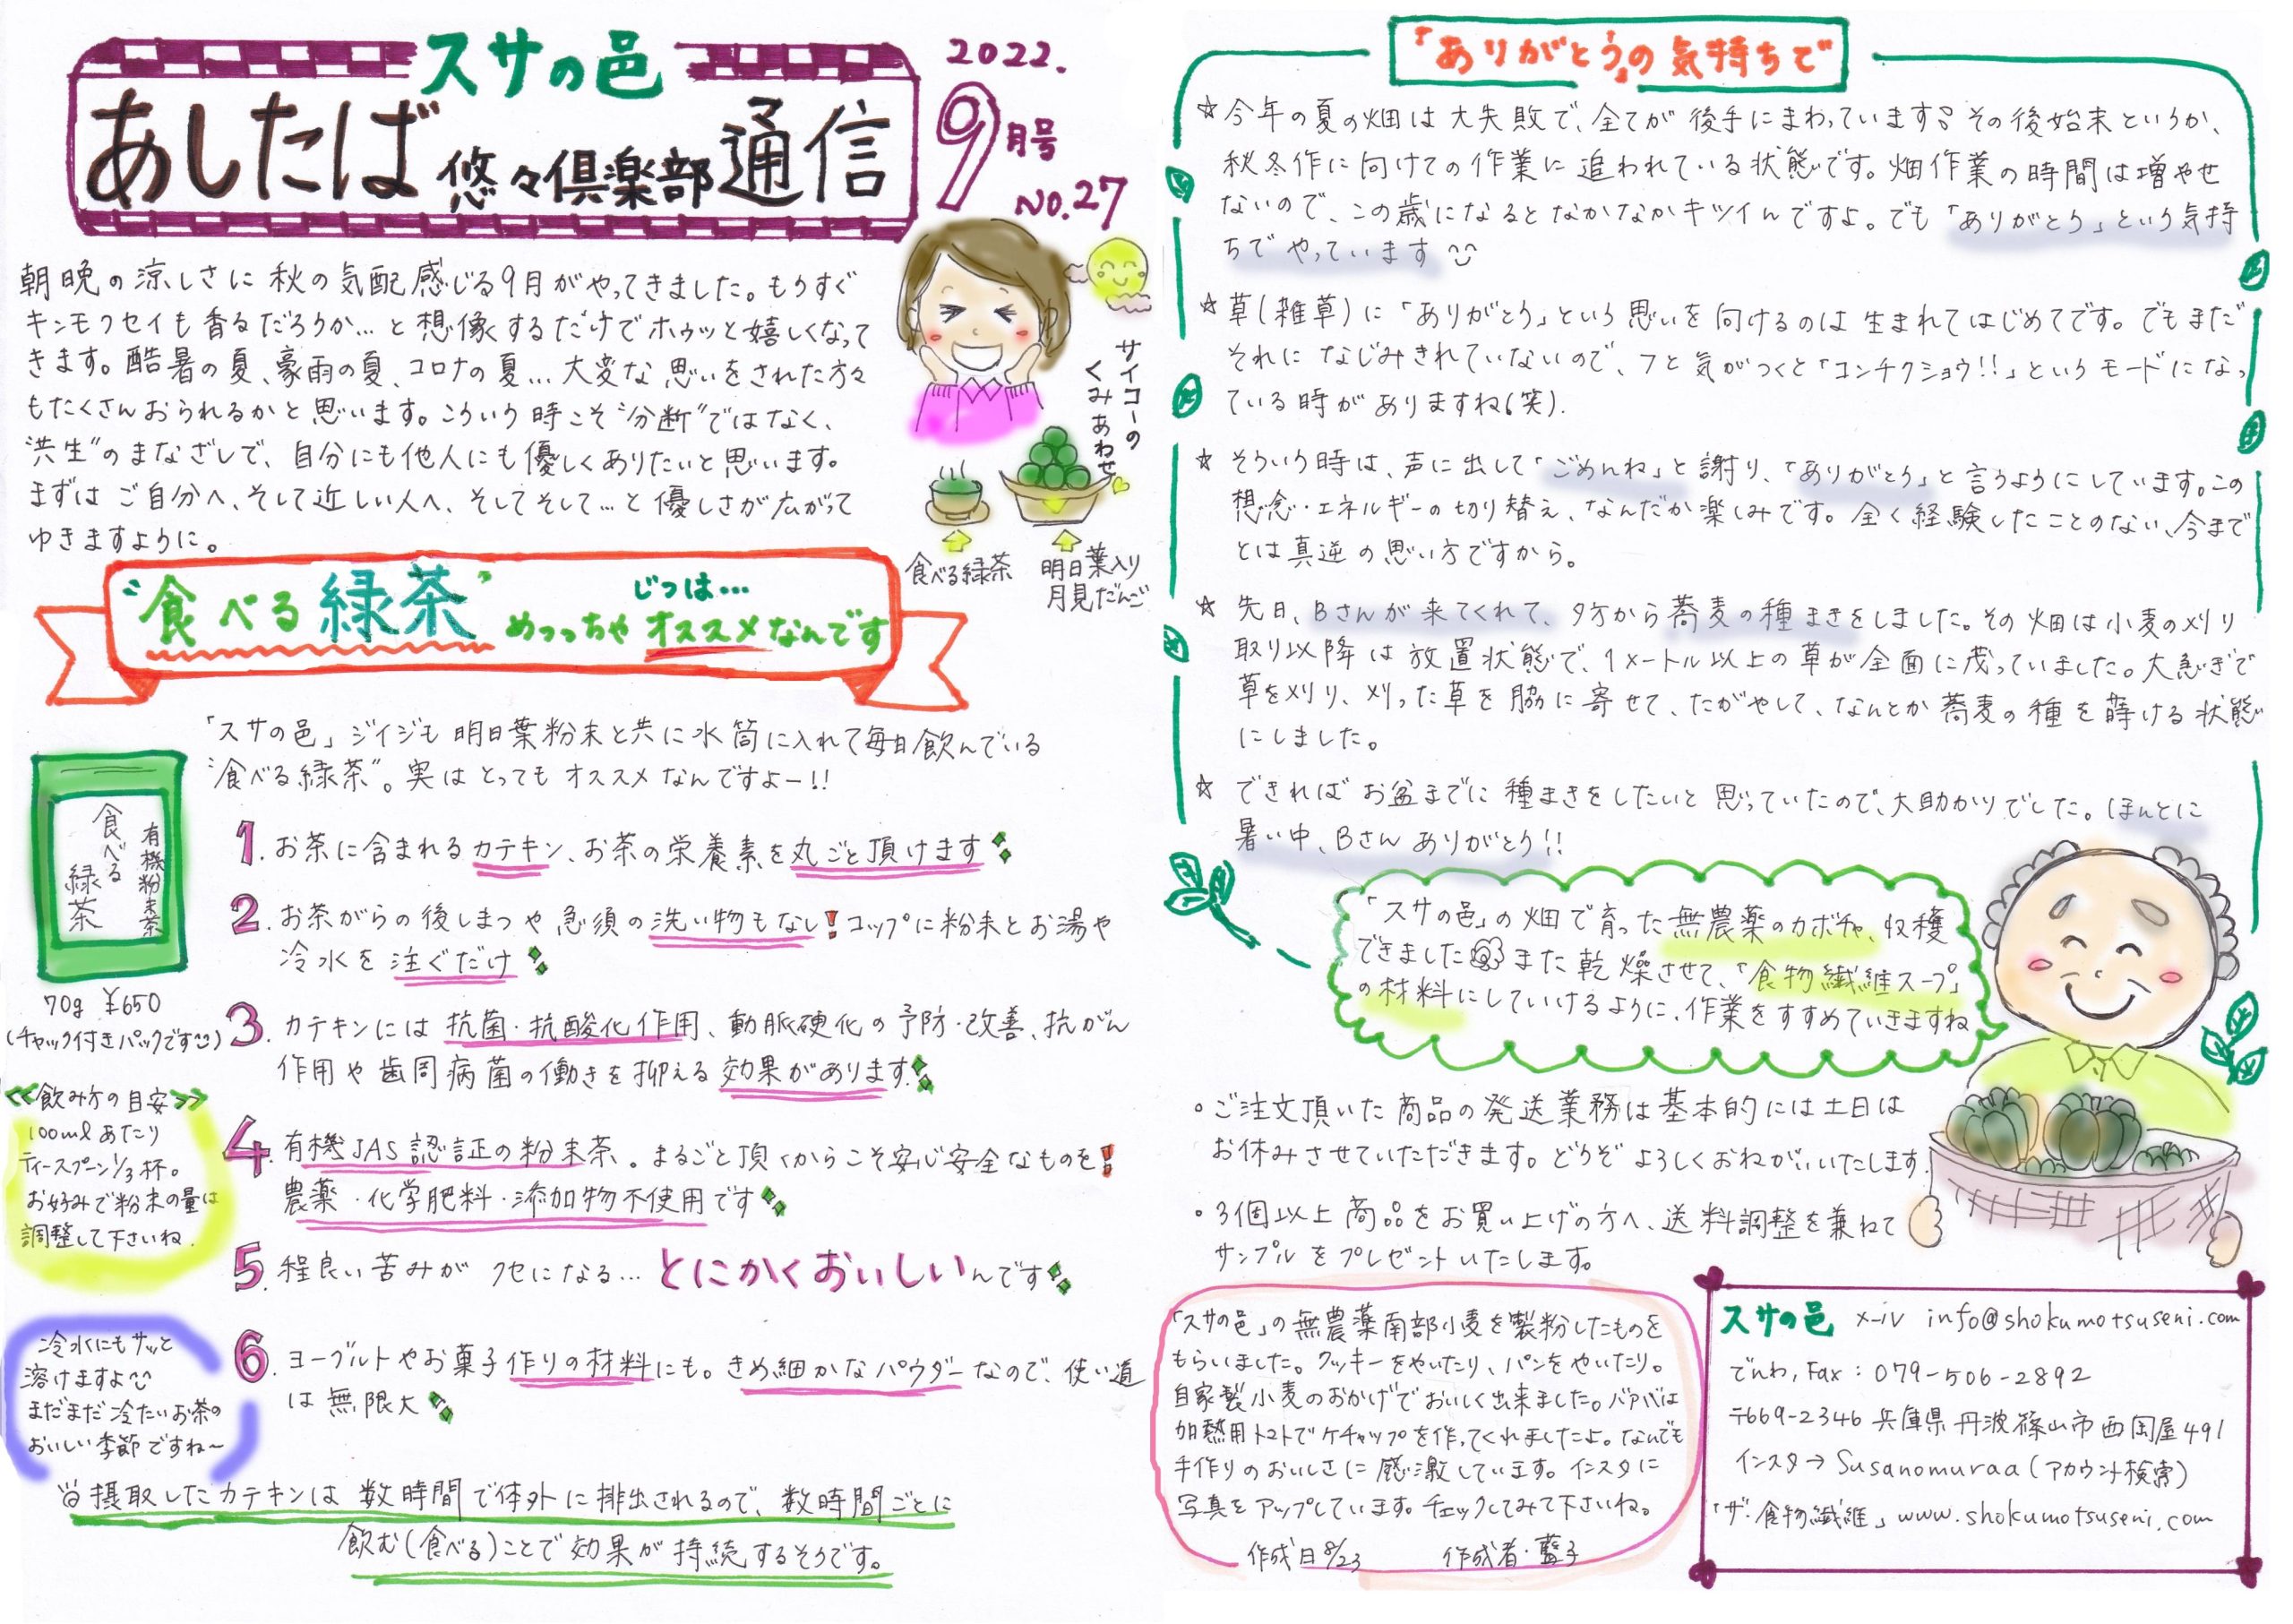 スサの邑
あしたば悠々倶楽部通信
2022.
9月号
No.27
朝晩の涼しさに秋の気配感じる9月がやってきました。もうすぐ
キンモクセイも香るだろうか…と想像するだけでホゥッと嬉しくなって
きます。酷暑の夏、豪雨の夏、コロナの夏…大変な思いをされた方々
もたくさんおられるかと思います。こういう時こそ“分断”ではなく、
“共生”のまなざしで、自分にも他人にも優しくありたいと思います。
まずはご自分へ、そして近しい人へ、そしてそして…と優しさが広がって
ゆきますように。
サイコーの
くみあわせ
食べる緑茶
明日葉入り
月見だんご
“食べる緑茶”
じつは…
めっっちゃオススメなんです
「スサの邑」ジイジも明日葉粉末と共に水筒に入れて毎日飲んでいる
“食べる緑茶”。実はとってもオススメなんですよー!!
有機粉末茶
食べる
緑茶
70g ¥650
(チャック付きパックです)
≪飲み方の目安≫
100mlあたり
ティースプーン1/3杯。
お好みで粉末の量は
調整して下さいね.
冷水にもサッと
溶けますよ
まだまだ冷たいお茶の
おいしい季節ですね~
1. お茶に含まれるカテキン、お茶の栄養素を丸ごと頂けます
2. お茶がらの後しまつや急須の洗い物もなし!コップに粉末とお湯や
冷水を注ぐだけ
3. カテキンには抗菌・抗酸化作用、動脈硬化の予防・改善、抗がん
作用や歯周病菌の働きを抑える効果があります.
4. 有機JAS認証の粉末茶。まるごと頂くからこそ安心安全なものを!
農薬・化学肥料・添加物不使用です
5. 程良い苦みがクセになる…とにかくおいしいんです
6. ヨーグルトやお菓子作りの材料にも。きめ細かなパウダーなので、使い道
は無限大
摂取したカテキンは数時間で体外に排出されるので、数時間ごとに
飲む(食べる)ことで効果が持続するそうです。
「ありがとう」の気持ちで
☆今年の夏の畑は大失敗で、全てが後手にまわっています。その後始末というか、
秋冬作に向けての作業に追われている状態です。畑作業の時間は増やせ
ないので、この歳になるとなかなかキツイんですよ。でも「ありがとう」という気持
ちでやっています
☆草(雑草)に「ありがとう」という思いを向けるのは生まれてはじめてです。でもまだ
それになじみきれていないので、フと気がつくと「コンチクショウ!!」というモードになっ
ている時がありますね(笑).
☆そういう時は、声に出して「ごめんね」と謝り、「ありがとう」と言うようにしています。この
想念・エネルギーの切り替え、なんだか楽しみです。全く経験したことのない、今まで
とは真逆の思い方ですから。
☆先日、Bさんが来てくれて、夕方から蕎麦の種まきをしました。その畑は小麦の刈り
取り以降は放置状態で、1メートル以上の草が全面に茂っていました。大急ぎで
草を刈り、刈った草を脇に寄せて、たがやして、なんとか蕎麦の種を蒔ける状態
にしました。
☆できればお盆までに種まきをしたいと思っていたので、大助かりでした。ほんとに
暑い中、Bさんありがとう!!
「スサの邑」の畑で育った無農薬のカボチャ、収穫
できました また乾燥させて、「食物繊維スープ」
の材料にしていけるように、作業をすすめていきますね
・ご注文頂いた商品の発送業務は基本的には土日は
お休みさせていただきます。どうぞよろしくおねがいいたします.
・3個以上商品をお買い上げの方へ、送料調整を兼ねて
サンプルをプレゼントいたします。
「スサの邑」の無農薬南部小麦を製粉したものを
もらいました。クッキーをやいたり、パンをやいたり。
自家製小麦のおかげでおいしく出来ました。バアバは
加熱用トマトでケチャップを作ってくれましたよ。なんでも
手作りのおいしさに感激しています。インスタに
写真をアップしています。チェックしてみて下さいね。
作成日8/23 作成者・藍子
スサの邑 メール info@shokumotsuseni.com
でんわ,Fax:079-506-2892
〒669-2346 兵庫県丹波篠山市西岡屋491
インスタ→Susanomuraa(アカウント検索)
「ザ・食物繊維」www.shokumotsuseni.com